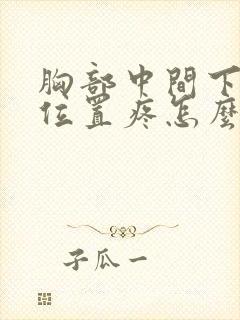 胸部中間下
位置疼怎麼
子瓜一